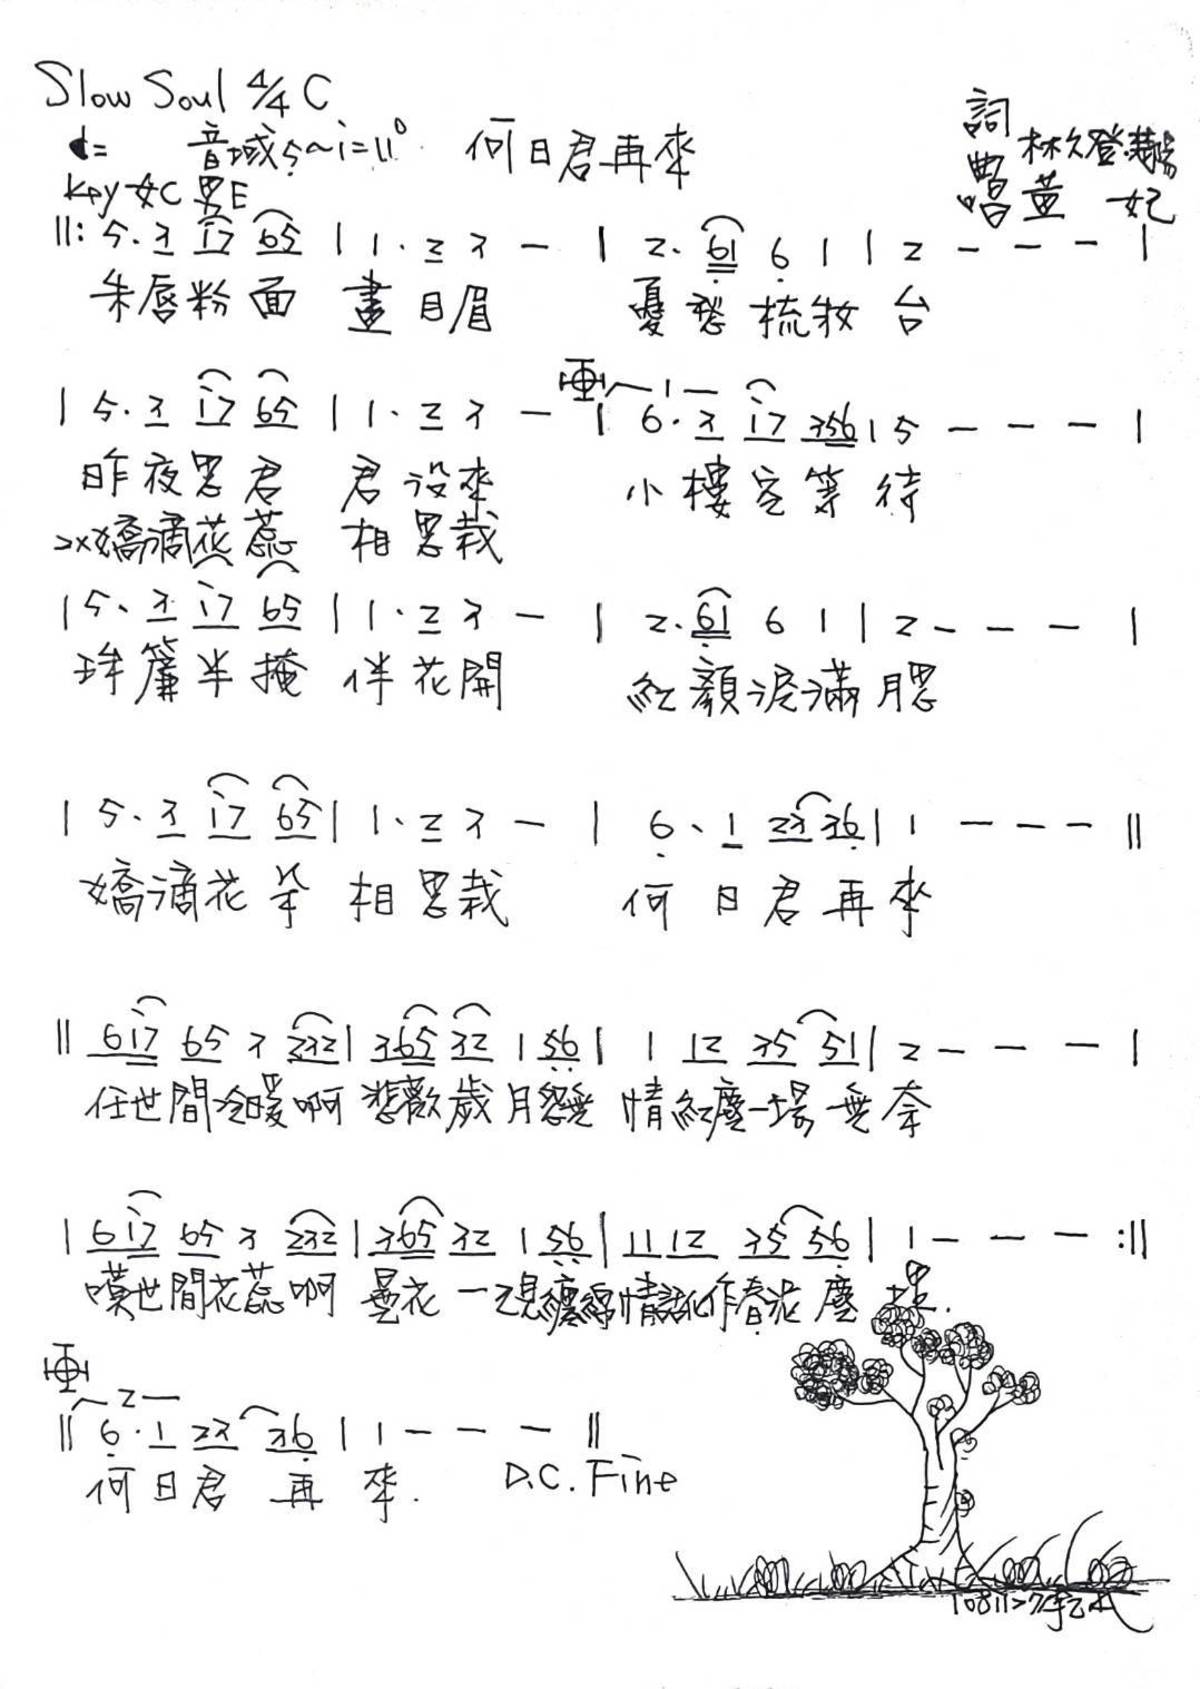 Slow Soul 4/4 C
詞
曲 林久登
♩= 音域5~i=11° 何日君再來
唱 黃妃
Key 女C 男E
||: 5. 3 i7 65 | 1. 2 3 — | 2. 61 6 1 | 2 — — — |
朱唇粉面 畫目眉 憂愁梳妝台
| 5. 3 i7 65 | 1. 2 3 — | 6. 3 i7 356 | 5 — — — |
昨夜思君 君沒來 小樓空等待
2x嬌滴花蕊 相思栽
| 5. 3 i7 65 | 1. 2 3 — | 2. 61 6 1 | 2 — — — |
珠簾半掩 伴花開 紅顏淚滿腮
| 5. 3 i7 65 | 1. 2 3 — | 6. 1 23 36 | 1 — — — ||
嬌滴花 相思栽 何日君再來
|| 6i7 65 3 232 | 365 32 1 56 | 1 12 35 51 | 2 — — — |
任世間冷暖啊 悲歡歲月怨無情紅塵一場無奈
| 6i7 65 3 232 | 365 32 1 56 | 11 12 35 56 | 1 — — — :||
嘆世間花蕊啊 曇花一現纏綿情話化作春泥塵埋.
2
|| 6. 1 23 36 | 1 — — — ||
何日君再來. D.C. Fine